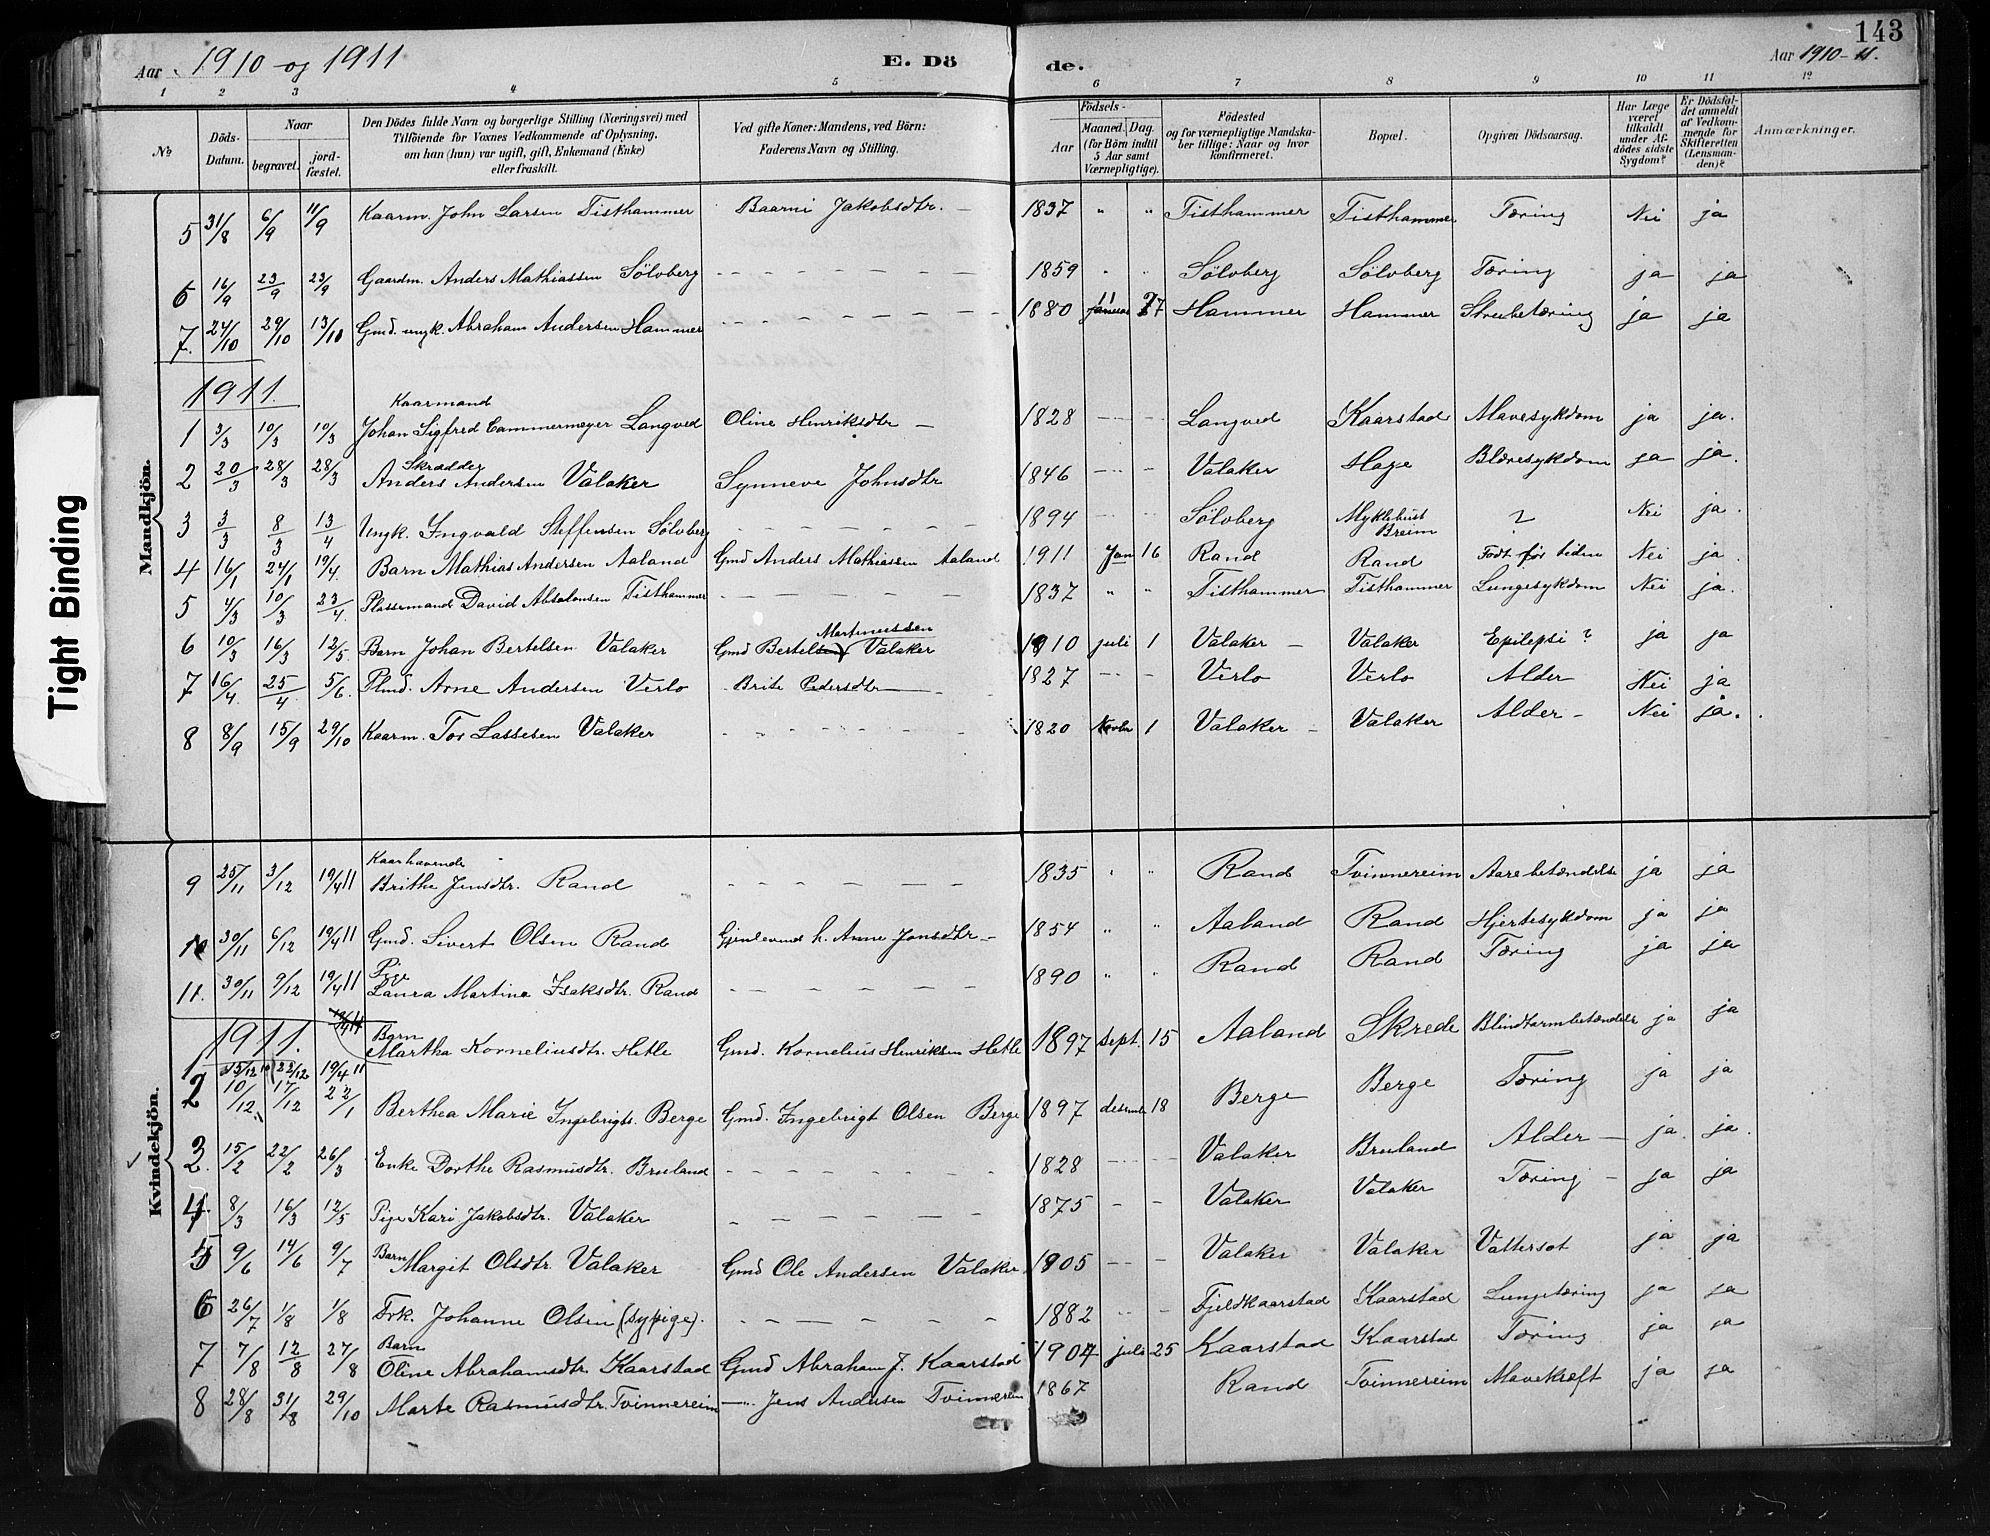 143
Aar 1910 og 1911
E. Dö
de.
Aar 1910-11.
1 2 3 4 5 6 7 8 9 10 11 12
No
Döds-Datum.
Naar
begravet.
jord-fæstet.
Den Dödes fulde Navn og borgerlige Stilling (Næringsvei) med
Tilföiende for Voxnes Vedkommende af Oplysning,
om han (hun) var ugift, gift, Enkemand (Enke)
eller fraskilt.
Ved gifte Koner: Mandens, ved Börn:
Faderens Navn og Stilling.
Födsels-
Aar
Maaned. Dag.
(for Börn indtil
5 Aar samt
Værnepligtige).
Födested
og for værnepligtige Mandska-
ber tillige: Naar og hvor
konfirmeret.
Bopæl.
Opgiven Dödsaarsag.
Har Læge
været
tilkaldt
under Af-
dödes sidste
Sygdom?
Er Dödsfal-
det anmeldt
af Vedkom-
mende for
Skifteretten
(Lensman-
den)?
Anmærkninger.
Mandkjön.
5 31/8 6/9 11/9 Kaarm. John Larsen Tisthammer Baarni Jakobsdtr. — 1837 " " Tisthammer Tisthammer Tæring Nei ja
6 16/9 23/9 23/9 Gaardm. Anders Mathiassen Sölvberg - - - - - - 1859 " " Sölvberg Sölvberg Tæring ja ja
7. 24/10 29/10 13/10 Gmd. ungk. Abraham Andersen Hammer - - - - - - 1880 11 27 Hammer Hammer Strubetæring ja ja
1911.
Kaarmand
1 3/3 10/3 10/3 Johan Sigfred Cammermeyer Langved Oline Henriksdtr — 1828 - - - Langved Kaarstad Mavesykdom ja ja.
Skrædder
2 20/3 28/3 28/3 Anders Andersen Valaker Synneve Johnsdtr 1846 - - - Valaker Hage Blæresykdom ja ja.
3 3/3 8/3 13/4 Ungk. Ingvald Steffensen Sölvberg - - - - - 1894 - - Sölvberg Myklebust Breim ? Nei ja.
4 16/1 24/1 19/4. Barn Mathias Andersen Aaland Gmd Anders Mathiassen Aaland 1911 Jan 16 Rand Rand Födt før tiden Nei ja.
5 4/3 10/3 23/4. Plassemand David Absalonsen Tisthammer - - - - - 1837 " " Tisthammer Tisthammer Lungesykdom Nei ja.
Martinussen
6 10/3 16/3 12/5. Barn Johan Bertelsen Valaker Gmd Bertelsen Valaker 1910 juli 1 Valaker — Valaker Epilepsi? ja ja
7 16/4. 25/4. 5/6. Plmd. Arne Andersen Verlo Brite Pedersdtr — 1827 - - - Verlo Verlo Alder Nei ja
8 8/9 15/9 29/10 Kaarm. Tor Lassesen Valaker - - - - - 1820 Novbr 1 Valaker — Valaker Alder - Nei ja.
Kvindekjön.
Kaarhavende
9 25/11 3/12 19/4 11 Brithe Jensdtr. Rand - - - - - 1835 " " Rand Tvinnereim Aarebetændelse ja ja
10 30/11 6/12 19/4 11 Gmd. Sivert Olsen Rand Gjenlevend h. Anne Jonsdtr - 1854 " " Aaland Rand Hjertesykdom ja ja
Pige
11. 30/11 9/12 19/4 11 Laura Martine Isaksdtr. Rand - - - - - 1890 " " Rand Rand Tæring ja ja
1911.
Barn
1 15/12 10 22/12 19/4 11 Martha Korneliusdtr. Hetle Gmd. Kornelius Henriksen Hetle 1897 sept. 15 Aaland Skrede Blindtarmbetændelse ja ja
2 10/12 17/12 22/1 Berthea Marie Ingebrigts. Berge Gmd. Ingebrigt Olsen Berge 1897 desember 18 Berge Berge Tæring ja ja
3. 15/2 22/2 26/3 Enke Dorthe Rasmusdtr. Bruland - - - - - 1828 - - - Valaker Bruland Alder — ja. ja.
4. 8/3 16/3 12/5 Pige Kari Jakobsdtr. Valaker - - - - - 1875 - - Valaker Valaker Tæring — ja ja
5 9/6 14/6 9/7 Barn Margit Olsdtr Valaker Gmd Ole Andersen Valaker 1905 - - - Valaker Valaker Vattersot ja ja
6 26/7 1/8 1/8 Frk. Johanne Olsen (sypige). - - - - - 1882 - - Fjeldkaarstad Kaarstad Lungetæring ja ja
Barn
7 7/8 12/8 27/8 Oline Abrahamsdtr. Kaarstad Gmd Abraham J. Kaarstad 1904 juli 25 Kaarstad Kaarstad Tæring ja ja
8 28/8 31/8 29/10 Marte Rasmusdtr. Tvinnereim —"— Jens Andersen Tvinnereim 1867 Rand Tvinnereim Mavekræft ja ja
Tight Binding